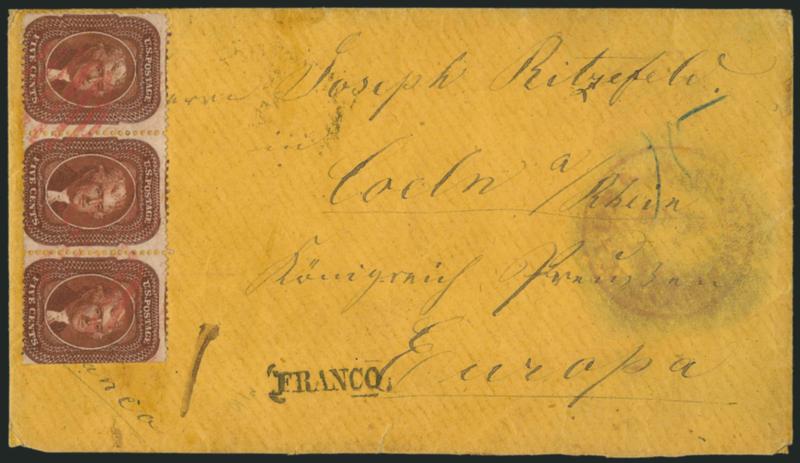 U.S. POSTAGE
FIVE CENTS
U.S. POSTAGE
FIVE CENTS
U.S. POSTAGE
FIVE CENTS
Herrn Joseph Ritzefeld.
in
Coeln a/Rhein
Königreich Preußen
Europa
FRANCO